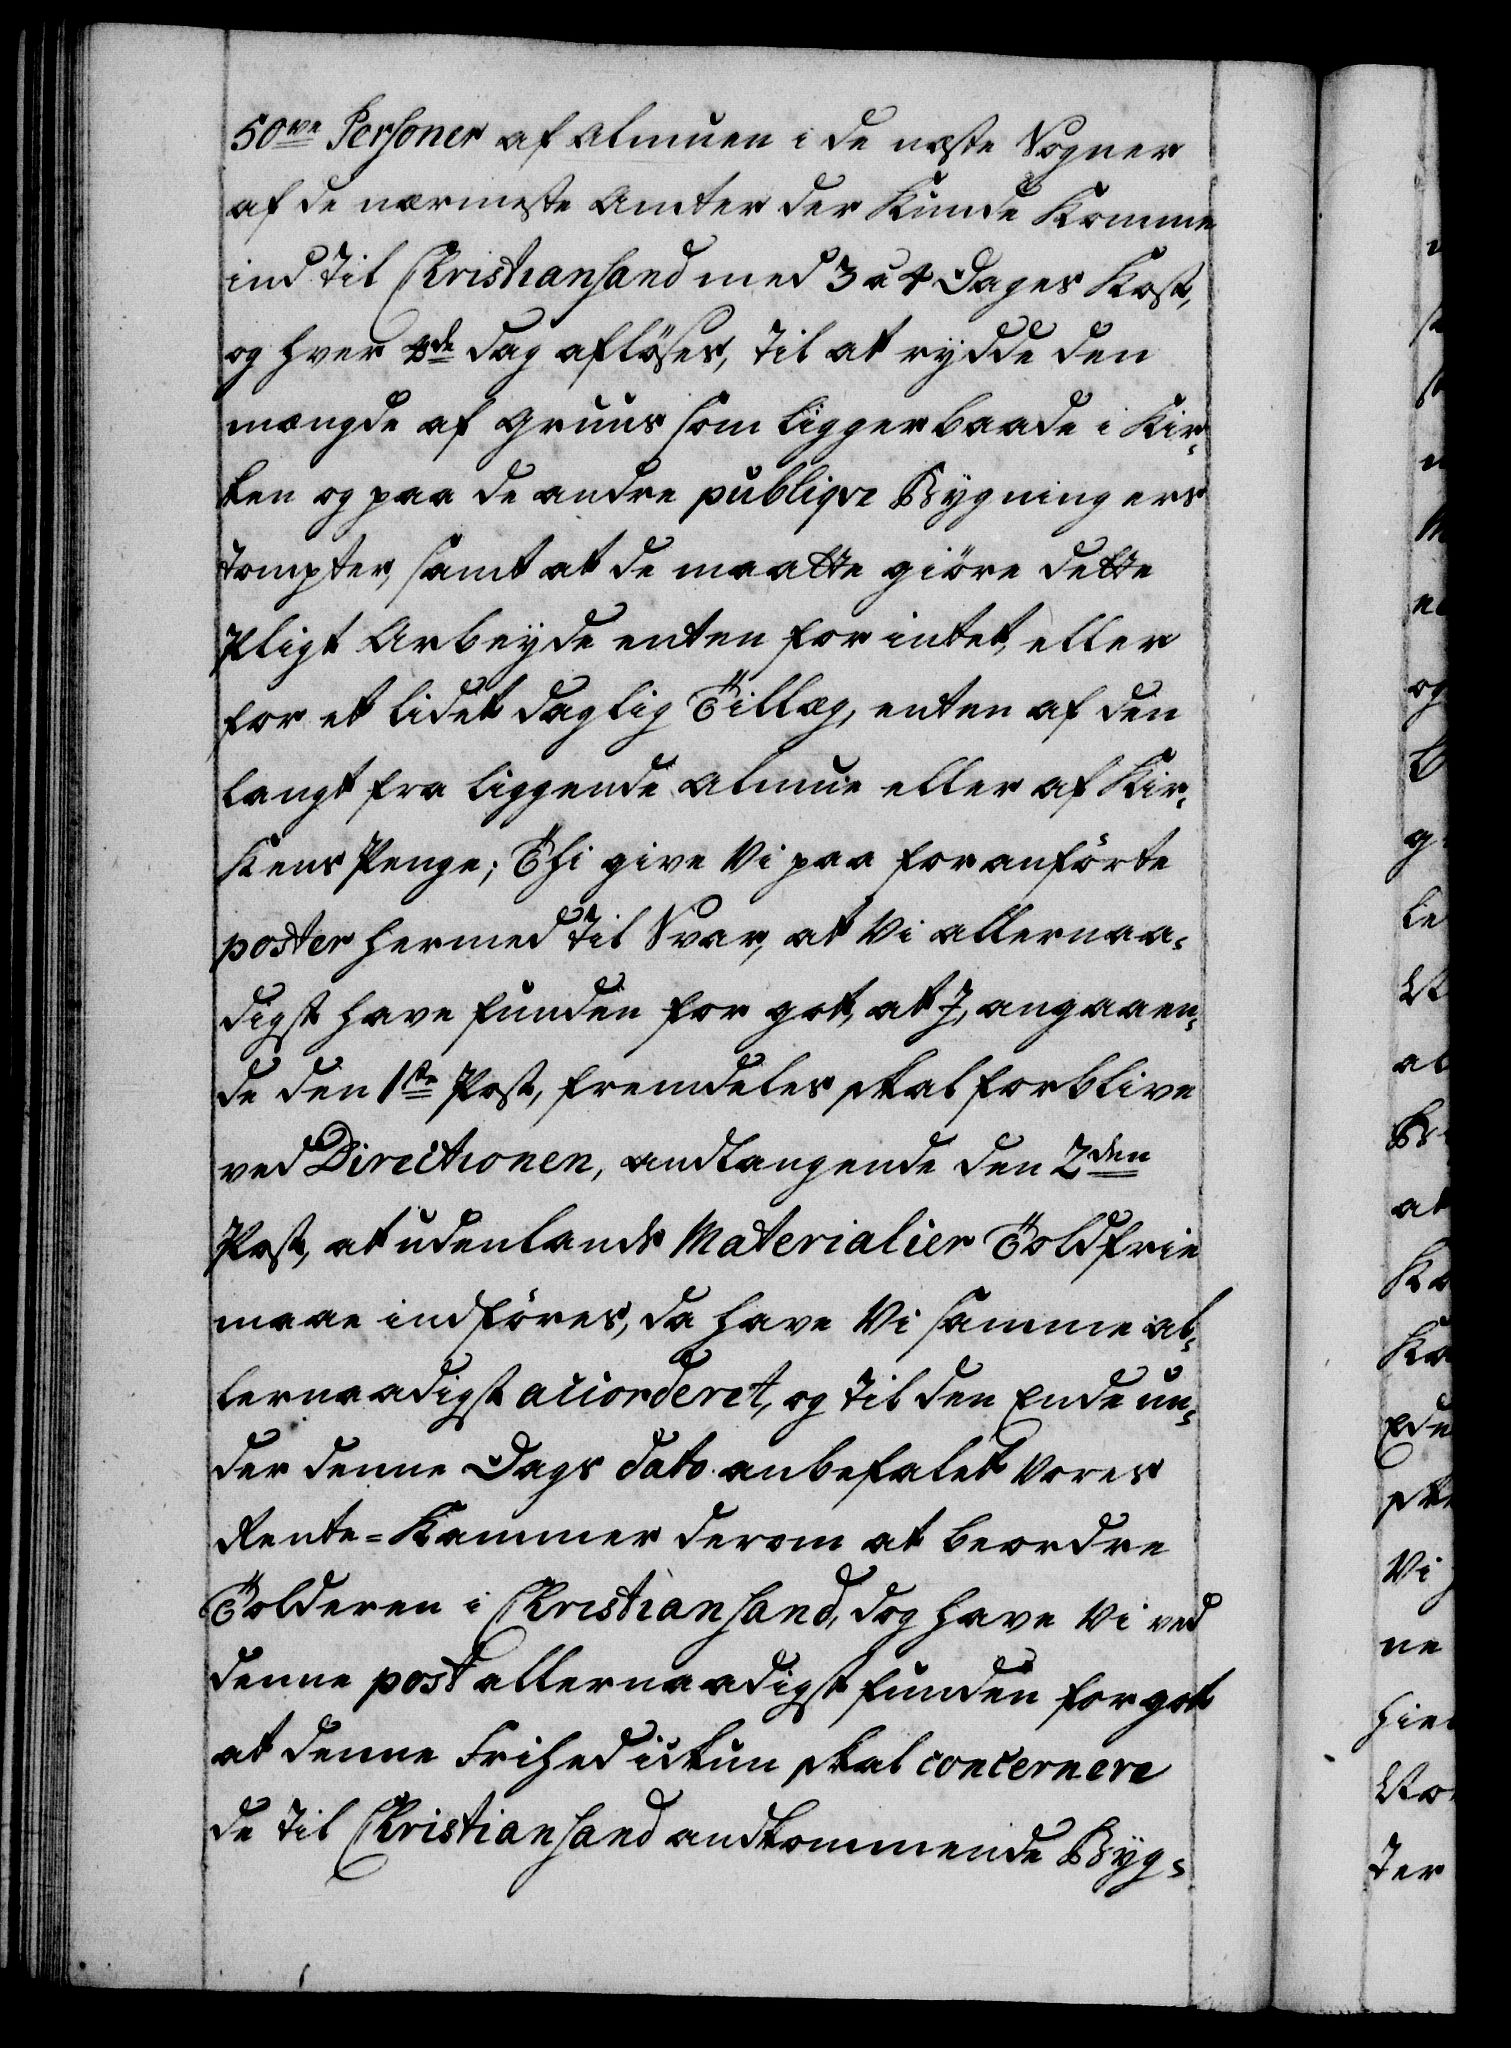 50ve Personer af Almuen i de næste Sogner
af de nærmeste Amter der Kunde Komme
ind til Christiansand med 3 a 4 Dages Kost,
og hver 4de dag aflöses, til at rydde den
mængde af Gruus som ligger baade i Kir-
ken og paa de andre publiqve Bygningers
Tompter, samt at de maatte giöre dette
Pligt Arbeyde enten for intet, eller
for et lidet daglig Tillæg, enten af den
langt fra liggende Almue eller af Kir-
Kens Penge; Thi give Vi paa foranförte
poster hermed til Svar, at Vi allernaa-
digst have funden for got, at J, angaaen-
de den 1ste Post, fremdeles skal forblive
ved Directionen, andlangende den 2den
Post, at udenlands Materialier Toldfrie
maae indföres, da have Vi samme al-
lernaadigst accorderet, og til den Ende un-
der denne Dags dato anbefalet Vores
Rente-Kammer derom at beordre
Tolderen i Christiansand, dog have Vi ved
denne post allernaadigst funden for got
at denne Frihed ickun skal concernere
de til Christiansand andkommende Byg-